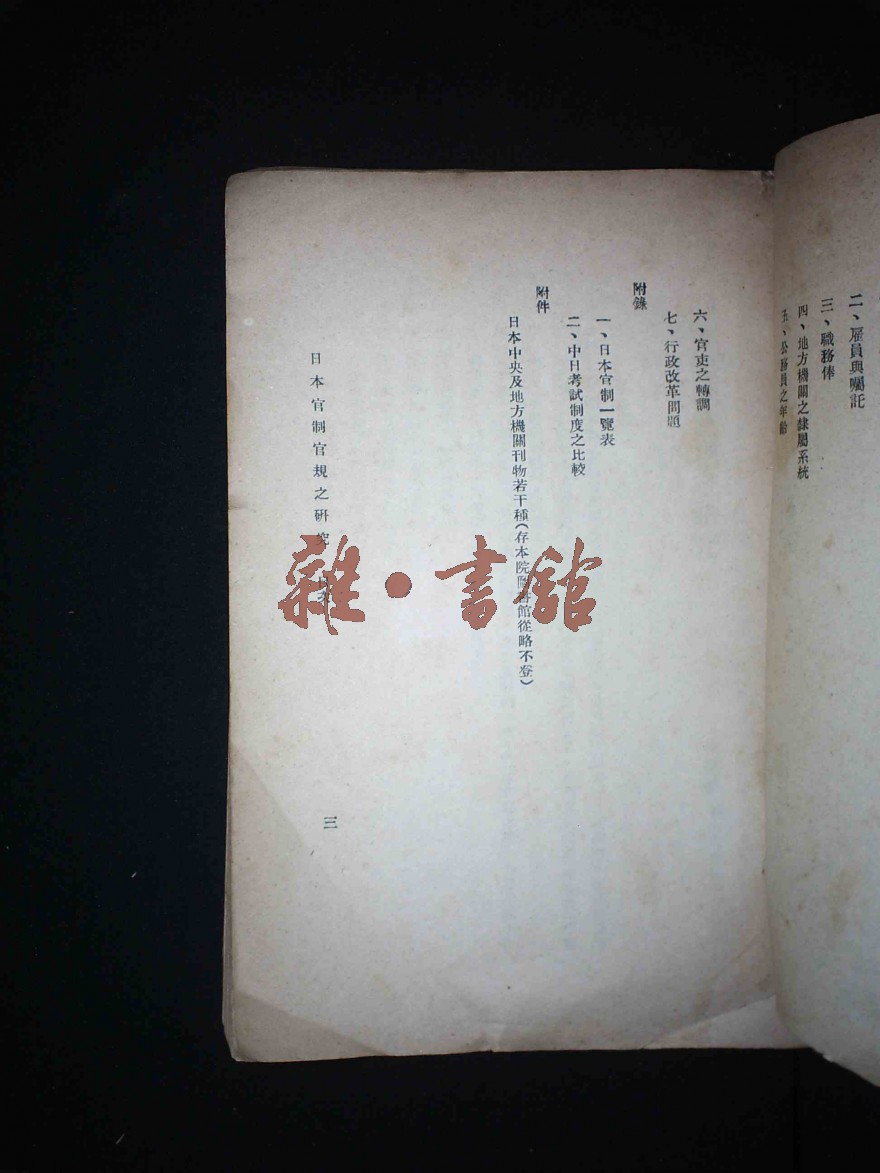 二、雇員與囑託
三、職務俸
四、地方機關之隸屬系統
五、公務員之年齡
六、官吏之轉調
七、行政改革問題
附錄
一、日本官制一覽表
二、中日考試制度之比較
附件
日本中央及地方機關刊物若干種(存本院圖書館從略不登)
日本官制官規之研究 目次
三
雜·書館